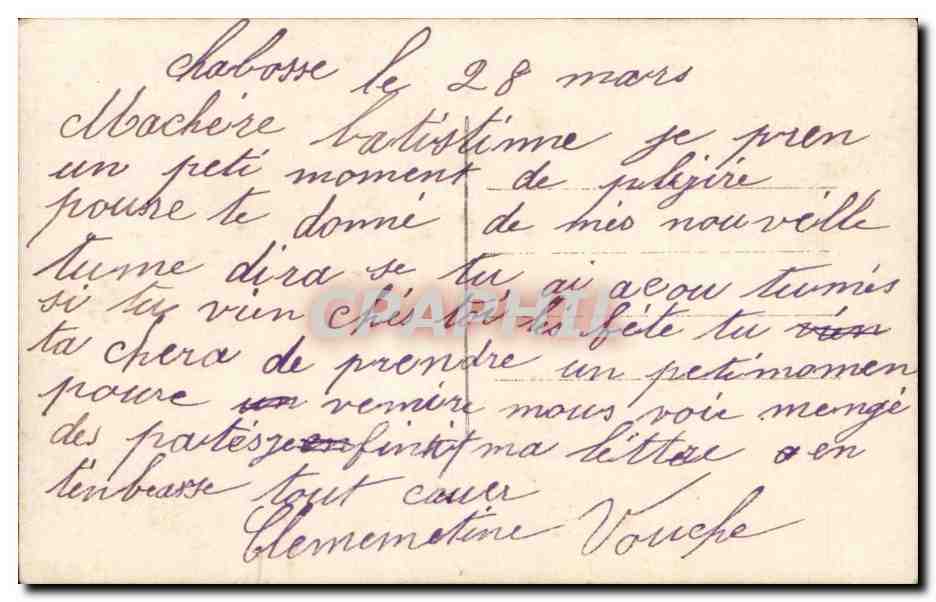 chabosse le 28 mars
Machère batistinne je pren
un peti moment de plizire
pouse te donné de mes nouvélle
tume dira se tu ai açou tumés
si tu vien chés toi lés féte tu vien
ta chera de prendre un petimomen
poure un venire nous voir mengé
des patés je en finit ma léttre en
tenbrasse tout cauer
Clememetine Vouche
CPAPHIL